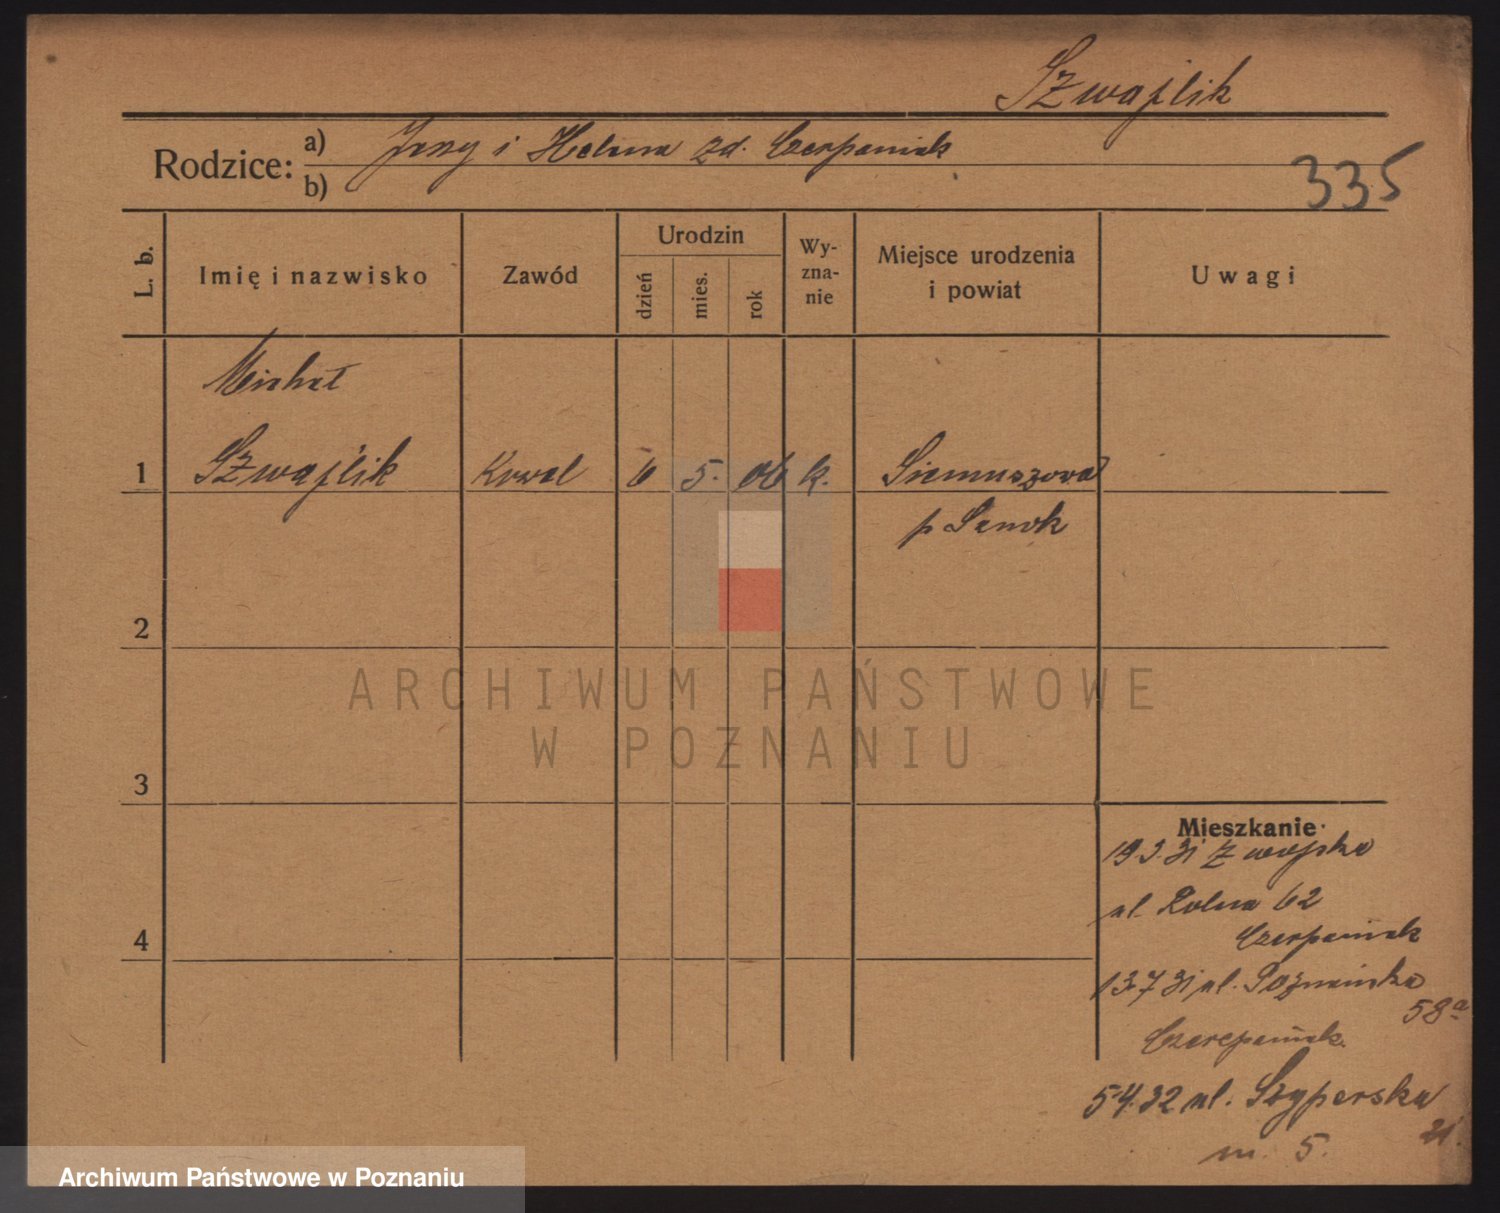 Szwajlik
Rodzice: a) Jerzy i Helena zd. Czerpaniak
b)
335
L. b.
Imię i nazwisko
Zawód
Urodzin
dzień
mies.
rok
Wy-
zna-
nie
Miejsce urodzenia
i powiat
Uwagi
Michał
1 Szwajlik Kowal 6 5. 06 k. Siemuszowa
p Sanok
2
ARCHIWUM PAŃSTWOWE
W POZNANIU
3
Mieszkanie
19 3. 31 z wojska
ul. Rolna 62
4
Czerpaniak
13 7 31 ul. Poznańska
58a
Czerepaniak.
5.4.32 ul. Szyperska
21.
m. 5.
Archiwum Państwowe w Poznaniu